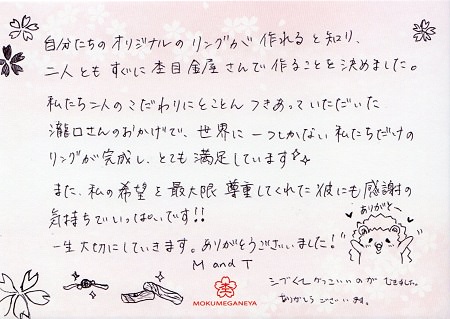 自分たちのオリジナルのリングが作れると知り、
二人ともすぐに杢目金屋さんで作ることを決めました。
私たち二人のこだわりにとことんつきあっていただいた
瀧口さんのおかげで、世界に一つしかない私たちだけの
リングが完成し、とても満足しています
また、私の希望を最大限尊重してくれた彼にも感謝の
気持ちでいっぱいです!!
ありがとー
一生大切にしていきます。ありがとうございました!
M and T
MOKUMEGANEYA
シブくてかっこいいのができました。
ありがとうございます。